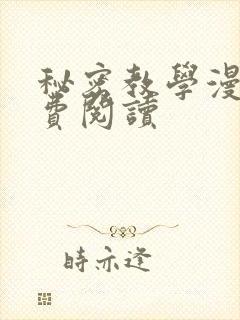 秘密教學漫
費閱讀
時亦逢